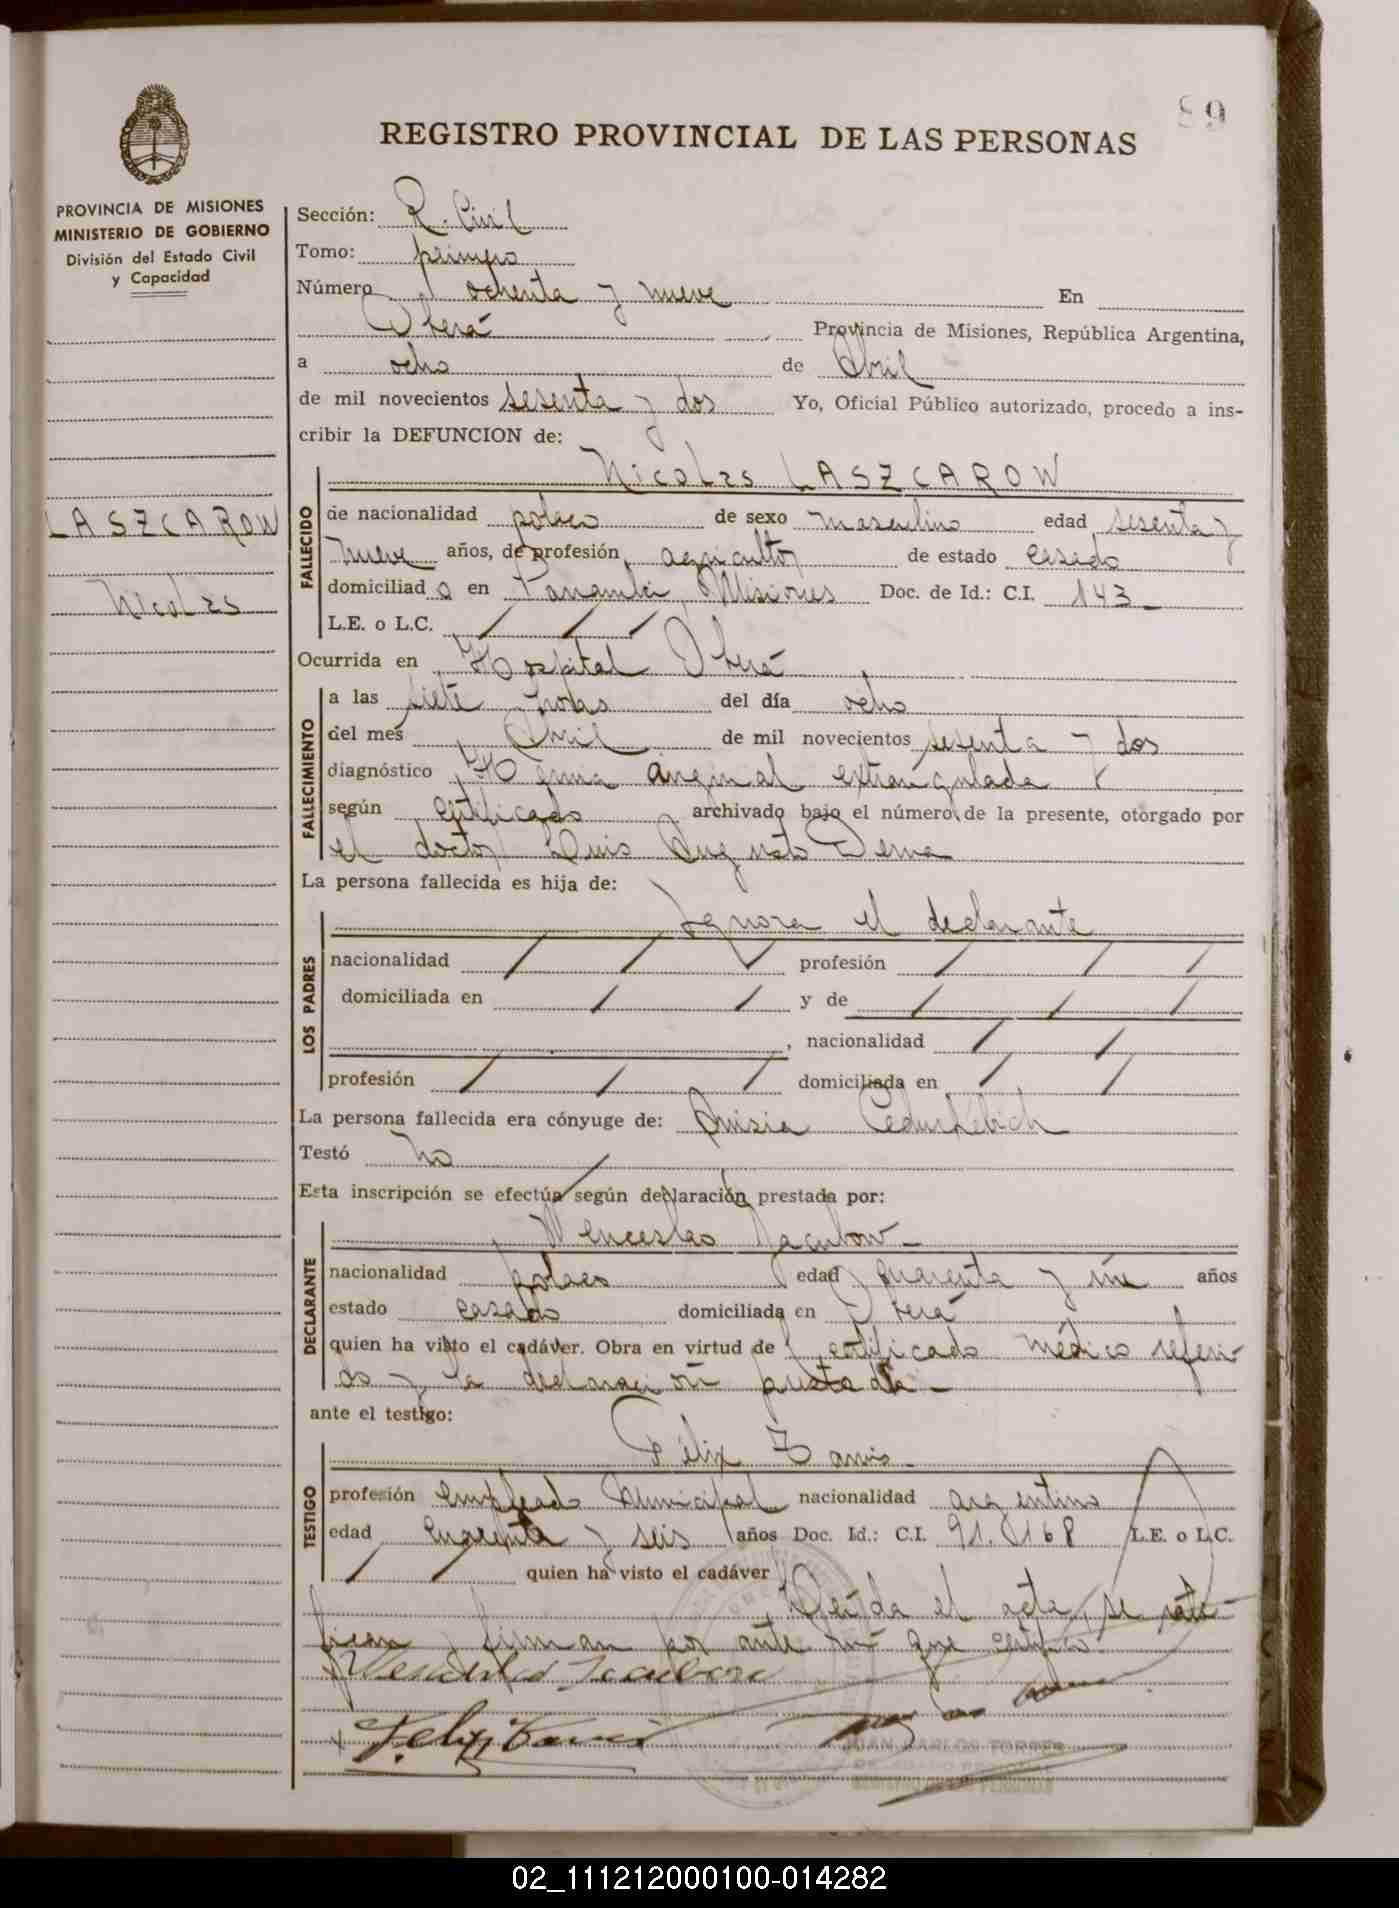 89
REGISTRO PROVINCIAL DE LAS PERSONAS
PROVINCIA DE MISIONES
MINISTERIO DE GOBIERNO
División del Estado Civil
y Capacidad
LASZCAROW
Nicolas
Sección: R. Civil
Tomo: primero
Número ochenta y nueve En
Oberá Provincia de Misiones, República Argentina,
a ocho de Abril
de mil novecientos sesenta y dos Yo, Oficial Público autorizado, procedo a ins-
cribir la DEFUNCION de:
FALLECIDO
Nicolas LASZCAROW
de nacionalidad polaco de sexo masculino edad sesenta y
nueve años, de profesión agricultor de estado casado
domiciliado en Panambí, Misiones Doc. de Id.: C.I. 143_
L.E. o L.C. / / /
Ocurrida en Hospital Oberá
FALLECIMIENTO
a las siete horas del día ocho
del mes Abril de mil novecientos sesenta y dos
diagnóstico Hernia inginal extrangulada
según certificado archivado bajo el número de la presente, otorgado por
el doctor Luis Augusto Derna
La persona fallecida es hija de:
LOS PADRES
Ignora el declarante
nacionalidad / / / profesión / / /
domiciliada en / / y de / / /
, nacionalidad / /
profesión / / / domiciliada en / /
La persona fallecida era cónyuge de: Anisia
Testó no /
Esta inscripción se efectúa según declaración prestada por:
DECLARANTE
Wenceslao Jacubow_
nacionalidad polaco edad cuarenta y un años
estado casado domiciliada en Oberá
quien ha visto el cadáver. Obra en virtud de certificado médico referi-
do y la declaración prestada_
ante el testigo:
TESTIGO
Félix
profesión empleado Municipal nacionalidad argentino
edad cuarenta y seis años Doc. Id.: C.I. 91.0168 L.E. o L.C.
/ / quien ha visto el cadáver
Leída el acta, se rati-
fican y firman por ante mí que certifico
JUAN CARLOS TORRES
02_111212000100-014282